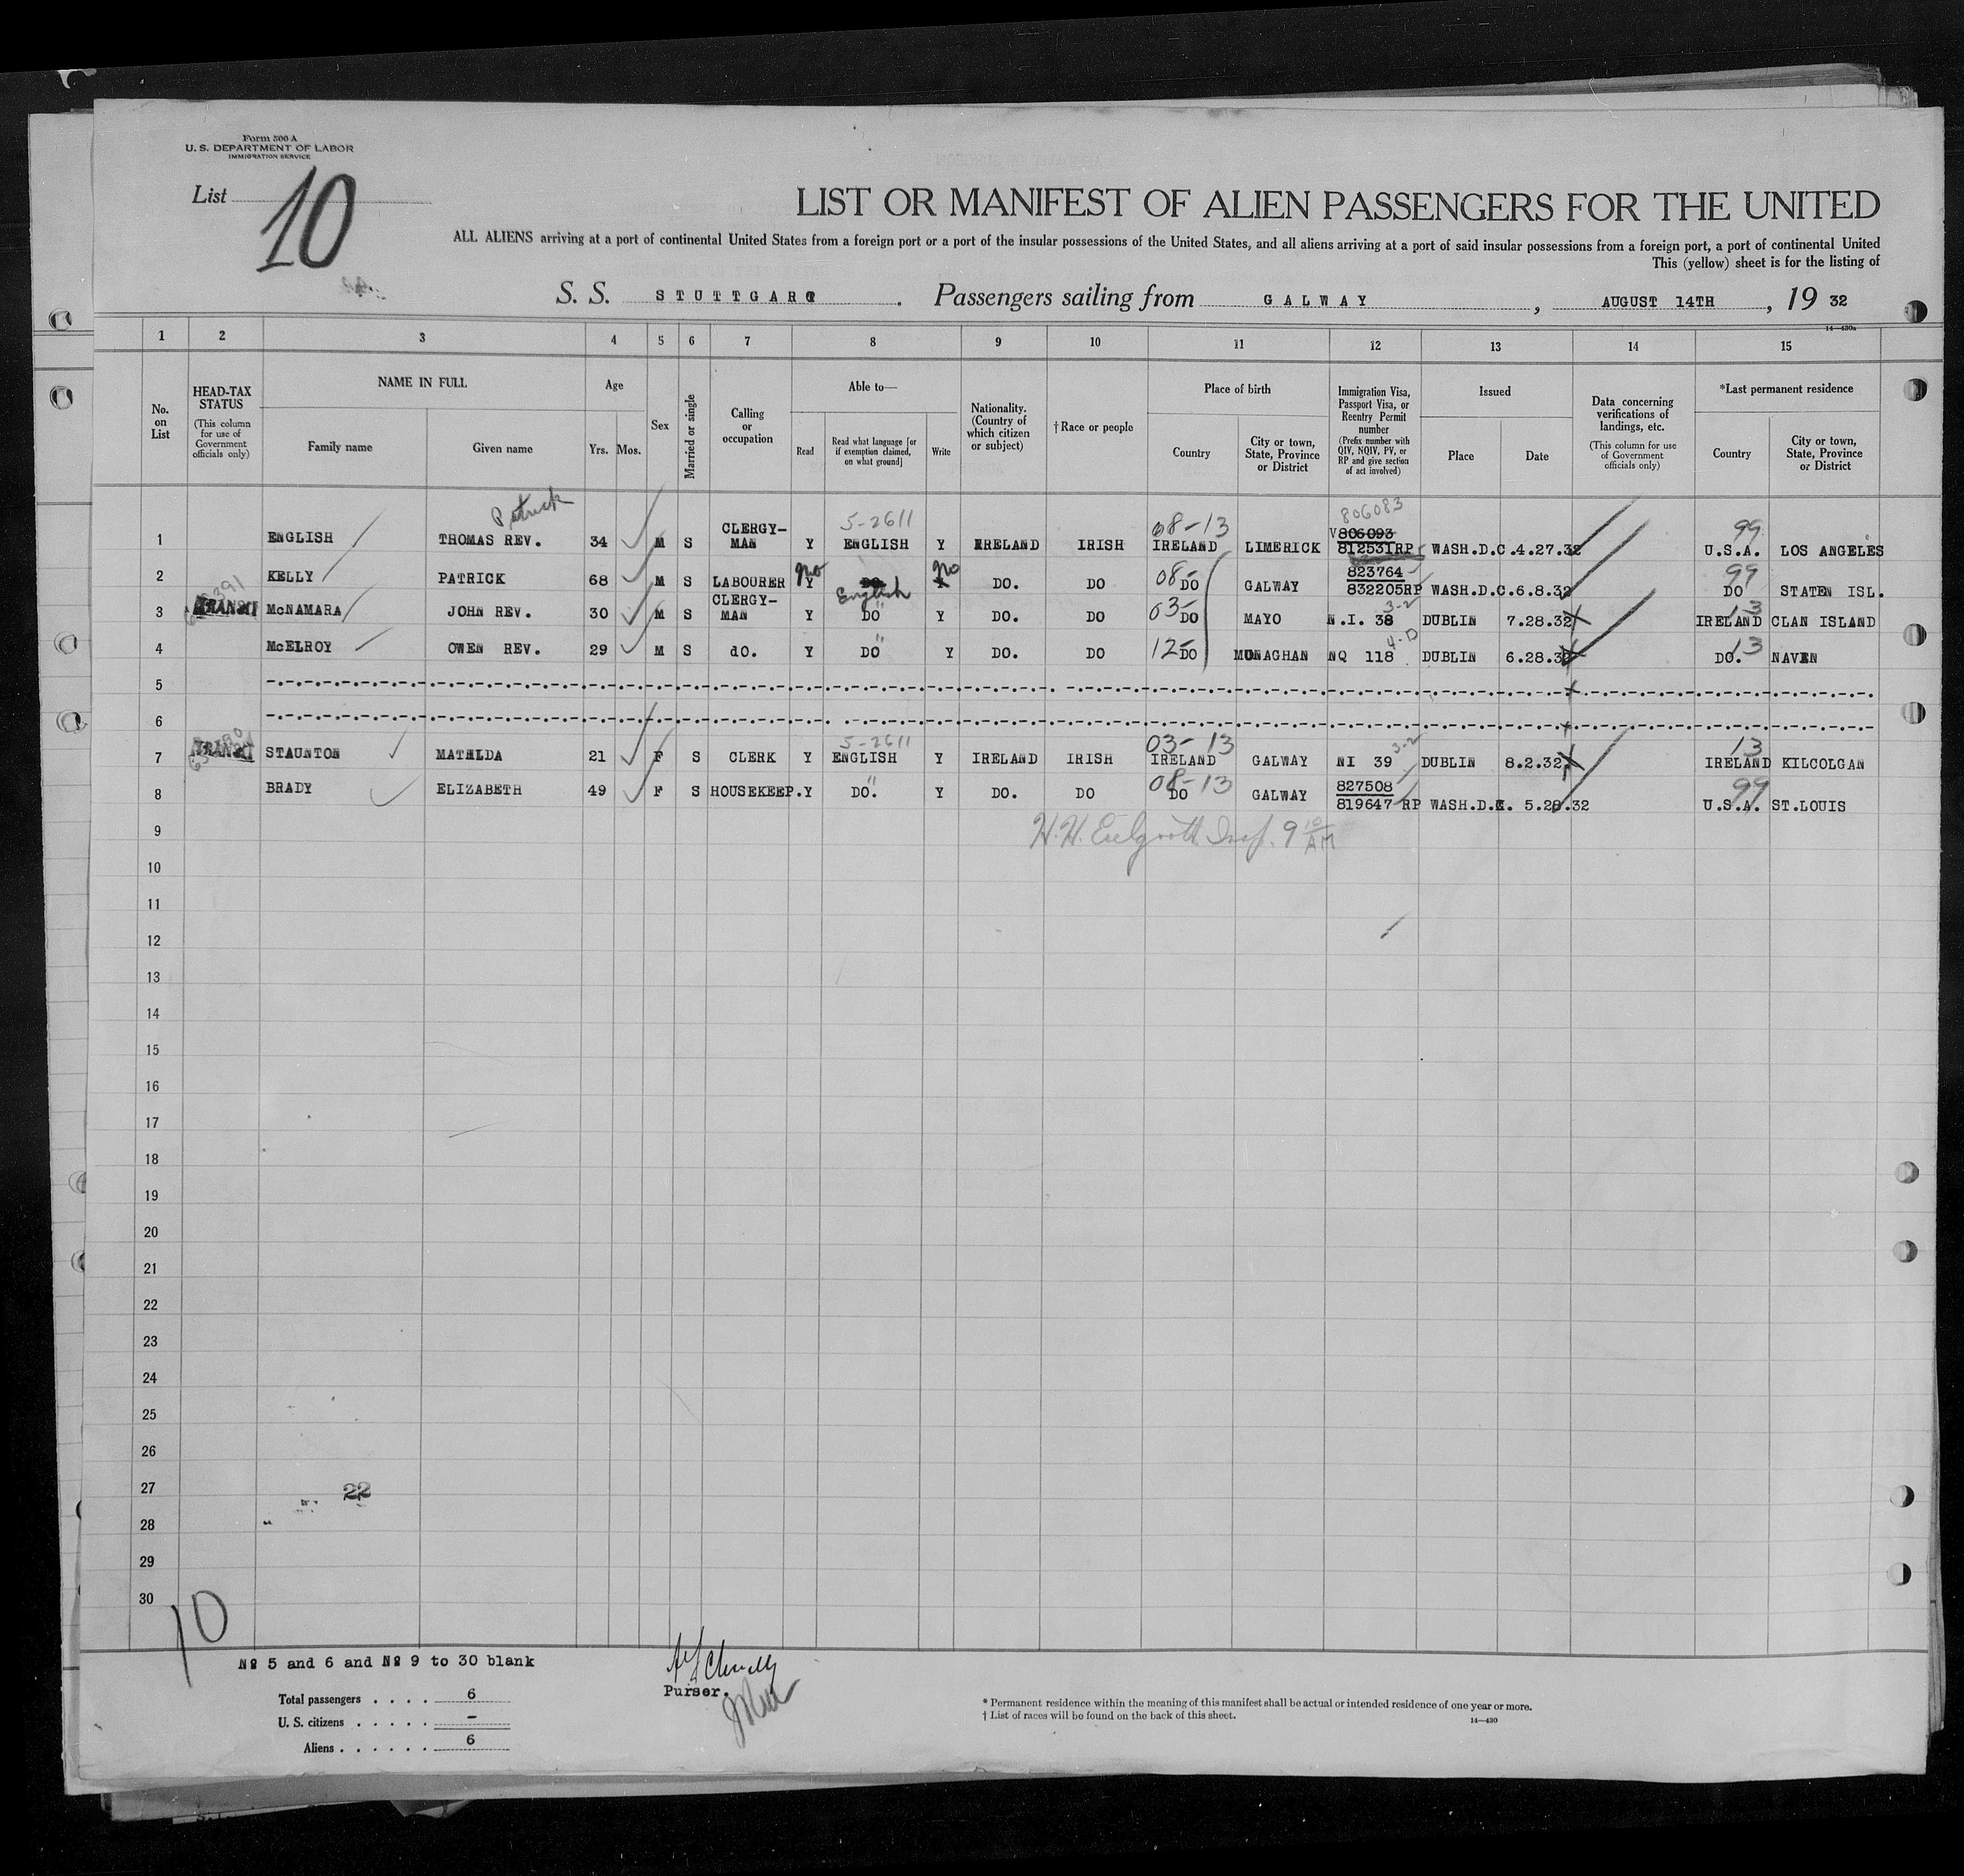 Form 500 A
U. S. DEPARTMENT OF LABOR
IMMIGRATION SERVICE
List 10
LIST OR MANIFEST OF ALIEN PASSENGERS FOR THE UNITED
ALL ALIENS arriving at a port of continental United States from a foreign port or a port of the insular possessions of the United States, and all aliens arriving at a port of said insular possessions from a foreign port, a port of continental United
This (yellow) sheet is for the listing of
S. S. STUTTGART. Passengers sailing from GALWAY, AUGUST 14TH, 19 32
14—430a
1 2 3 4 5 6 7 8 9 10 11 12 13 14 15
No. on List
HEAD-TAX STATUS
(This column for use of Government officials only)
NAME IN FULL
Family name
Given name
Age
Yrs. Mos.
Sex
Married or single
Calling or occupation
Able to—
Read
Read what language [or if exemption claimed, on what ground]
Write
Nationality. (Country of which citizen or subject)
† Race or people
Place of birth
Country
City or town, State, Province or District
Immigration Visa, Passport Visa, or Reentry Permit number
(Prefix number with QIV, NQIV, PV, or RP and give section of act involved)
Issued
Place
Date
Data concerning verifications of landings, etc.
(This column for use of Government officials only)
*Last permanent residence
Country
City or town, State, Province or District
Patrick 5-2611 08-13 806083 99
1 ENGLISH THOMAS REV. 34 M S CLERGY-MAN Y ENGLISH Y IRELAND IRISH IRELAND LIMERICK V806093 812531RP WASH.D.C.4.27.32 U.S.A. LOS ANGELES
2 KELLY PATRICK 68 M S LABOURER Y no DO English no DO. DO 08- DO GALWAY 823764 832205RP WASH.D.C.6.8.32 99 DO STATEN ISL.
3 TRANSIT McNAMARA JOHN REV. 30 M S CLERGY-MAN Y DO" Y DO. DO 03- DO MAYO N.I. 38 3-2 DUBLIN 7.28.32 13 IRELAND CLAN ISLAND
4 McELROY OWEN REV. 29 M S dO. Y DO" Y DO. DO 12- DO MONAGHAN NQ 118 4-D DUBLIN 6.28.32 DO. 13 NAVEN
5
6
7 TRANSIT STAUNTON MATHLDA 21 F S CLERK Y 5-2611 ENGLISH Y IRELAND IRISH 03-13 IRELAND GALWAY NI 39 3-2 DUBLIN 8.2.32 13 IRELAND KILCOLGAN
8 BRADY ELIZABETH 49 F S HOUSEKEEP. Y DO." Y DO. DO 08-13 DO GALWAY 827508 819647 RP WASH.D.C. 5.28.32 99 U.S.A. ST.LOUIS
9 H. H. Insp. 9 10 AM
10
11
12
13
14
15
16
17
18
19
20
21
22
23
24
25
26
27 22
28
29
30
10
No 5 and 6 and No 9 to 30 blank
Total passengers . . . . 6
U. S. citizens . . . . . –
Aliens . . . . . . 6
Purser.
* Permanent residence within the meaning of this manifest shall be actual or intended residence of one year or more.
† List of races will be found on the back of this sheet.
14—430